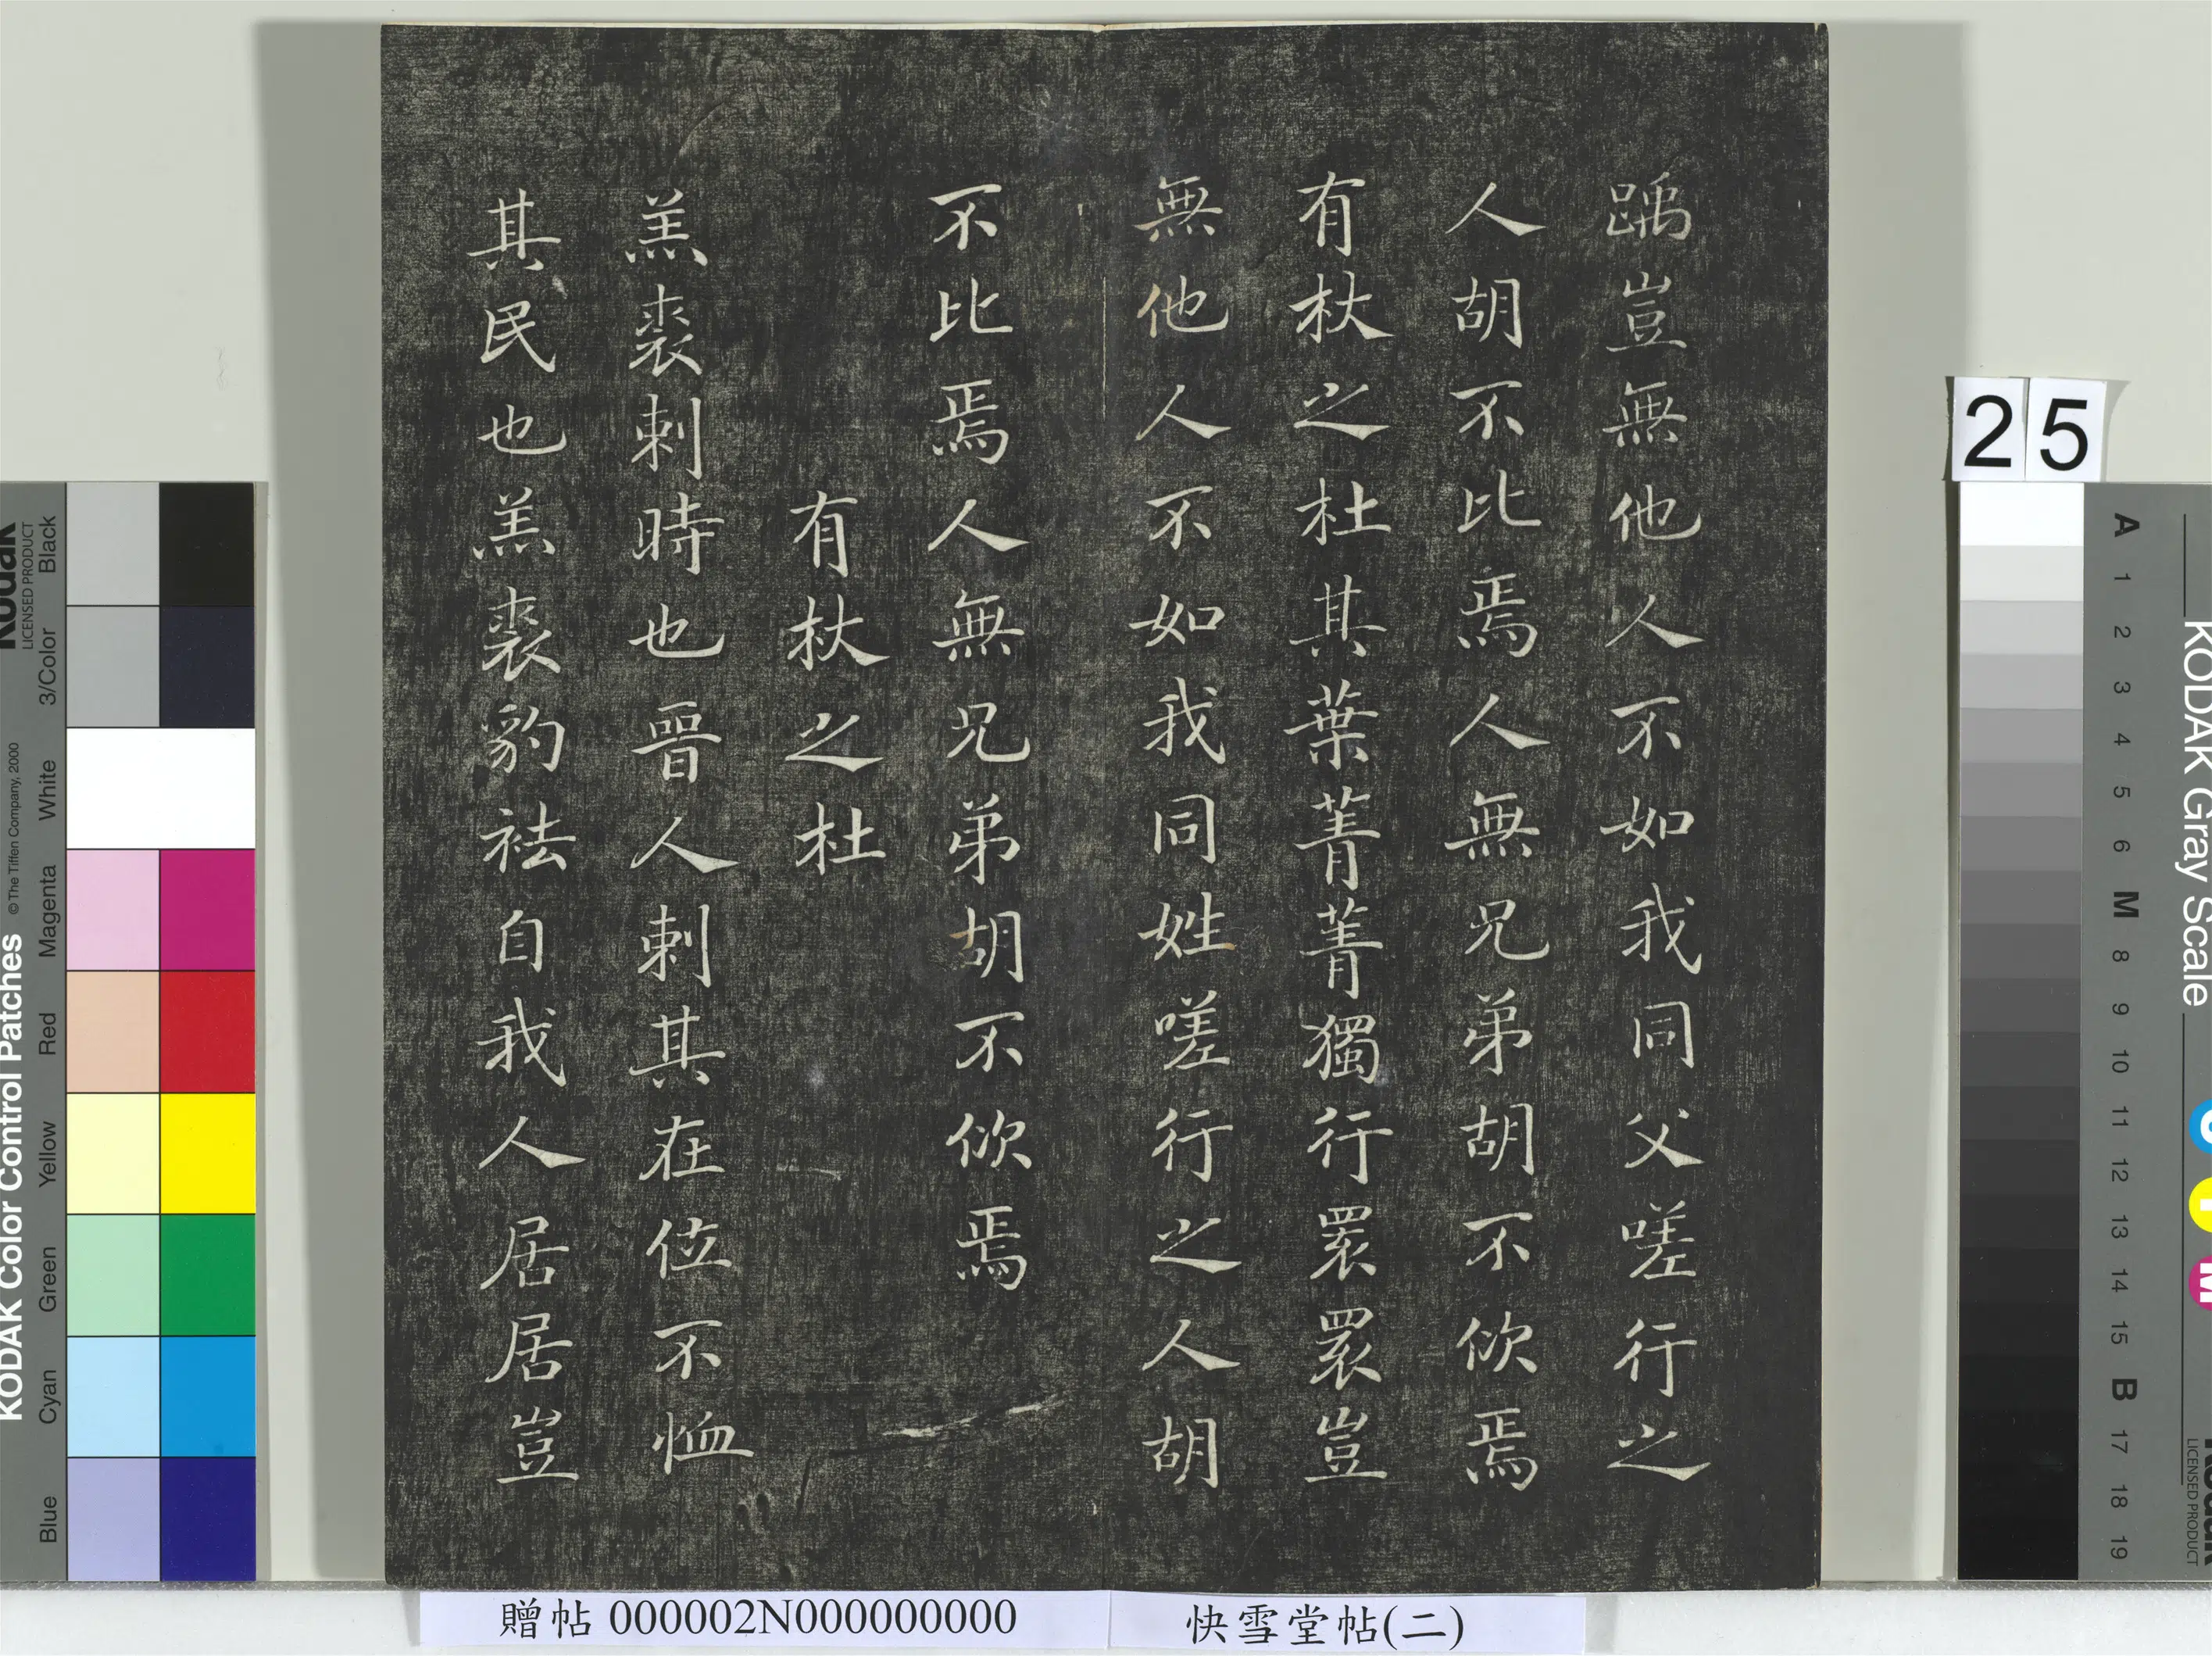 踽豈無他人不如我同父嗟行之
人胡不比焉人無兄弟胡不佽焉
有杕之杜其葉菁菁獨行睘睘豈
無他人不如我同姓嗟行之人胡
不比焉人無兄弟胡不佽焉
有杕之杜
羔裘刺時也晉人刺其在位不恤
其民也羔裘豹袪自我人居居豈
贈帖 000002N000000000
快雪堂帖(二)
25
KODAK Color Control Patches
© The Tiffen Company, 2000
Kodak
LICENSED PRODUCT
Blue
Cyan
Green
Yellow
Red
Magenta
White
3/Color
Black
KODAK Gray Scale
A 1 2 3 4 5 6 M 8 9 10 11 12 13 14 15 B 17 18 19
C
Y
M
Kodak
LICENSED PRODUCT